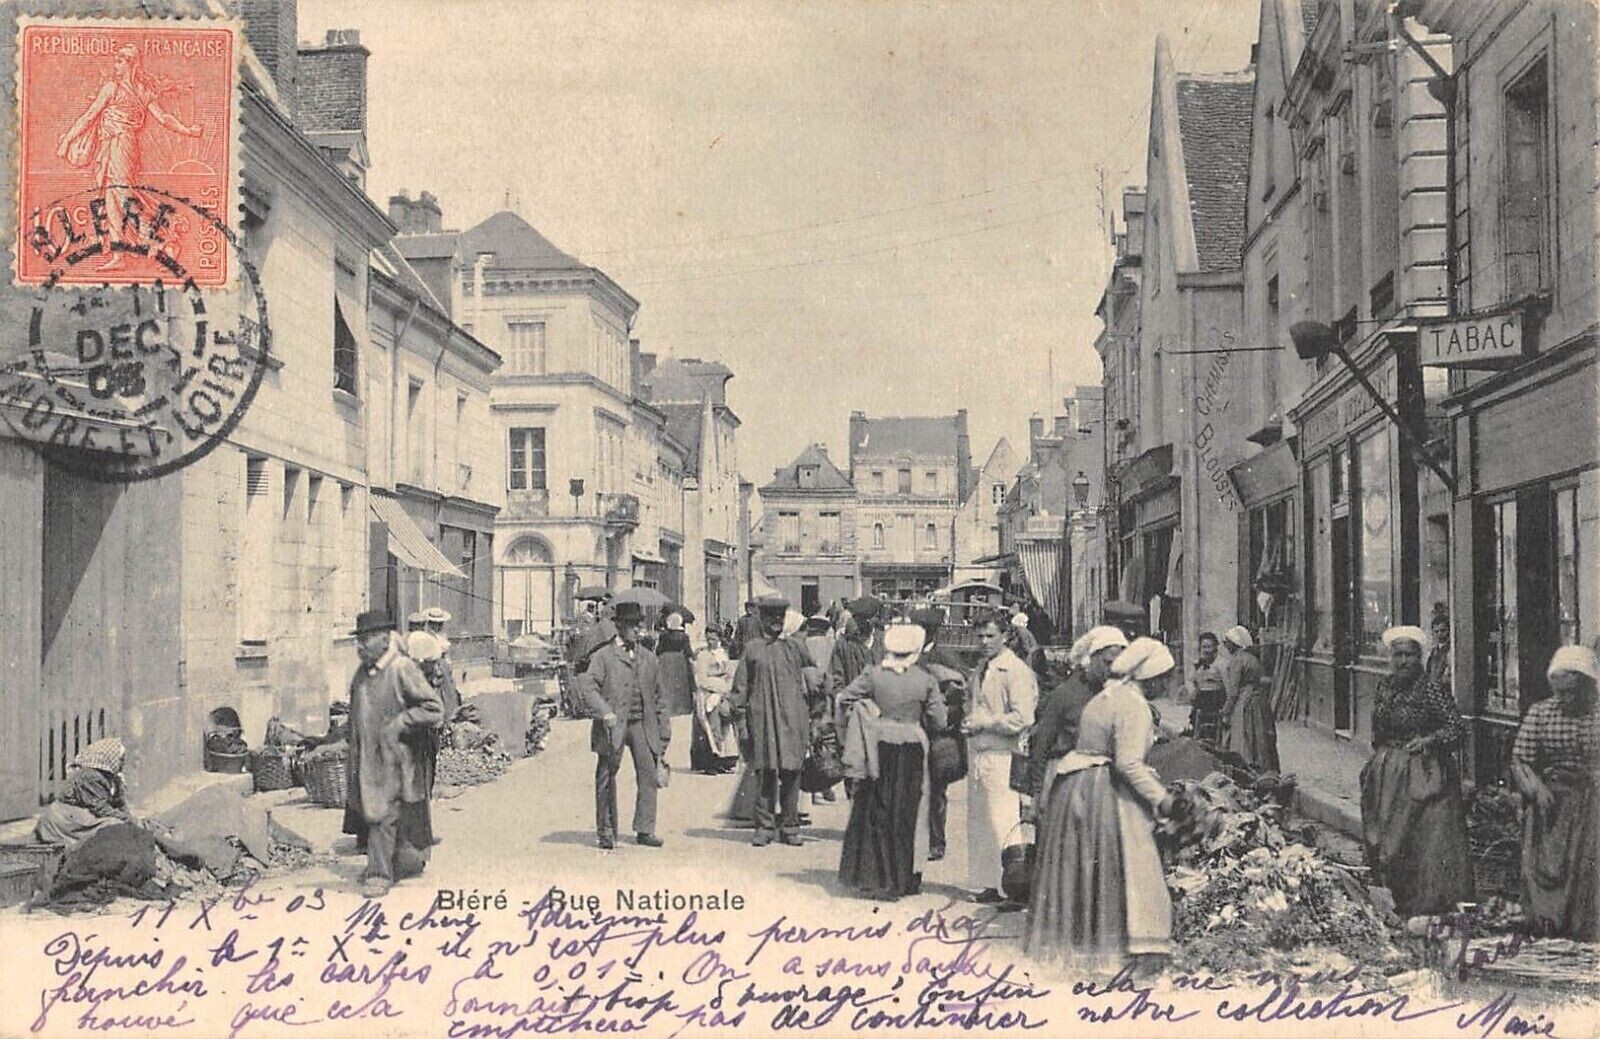 REPUBLIQUE FRANÇAISE
10 c
POSTES
BLÉRÉ
11
DEC
03
INDRE-ET-LOIRE
CHEMISES
BLOUSES
TABAC
Bléré - Rue Nationale
11 Xbre 03 Ma chère Adrienne
Dépuis le 1er Xbre, il n'est plus permis d'a
franchir les cartes à 0,01c. On a sans doute
trouvé que cela donnait trop d'ouvrage! Enfin cela ne nous
empêchera pas de continuer notre collection Marie